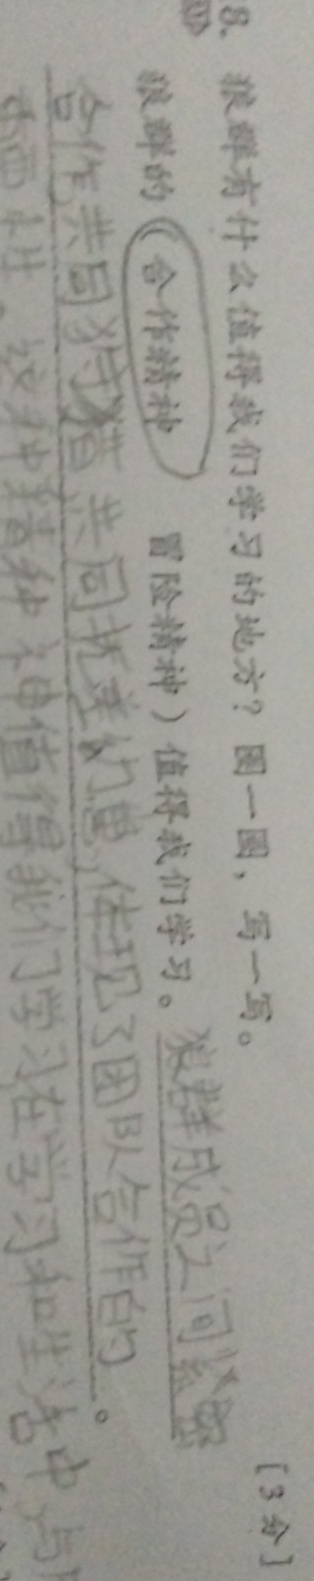 8. 狼群有什么值得我们学习的地方？圈一圈，写一写。 [3分]
狼群的（合作精神 冒险精神）值得我们学习。狼群成员之间紧密
合作,共同狩猎 共同抚养幼崽,体现了团队合作的。
这种精神值得我们学习在学习和生活中,与